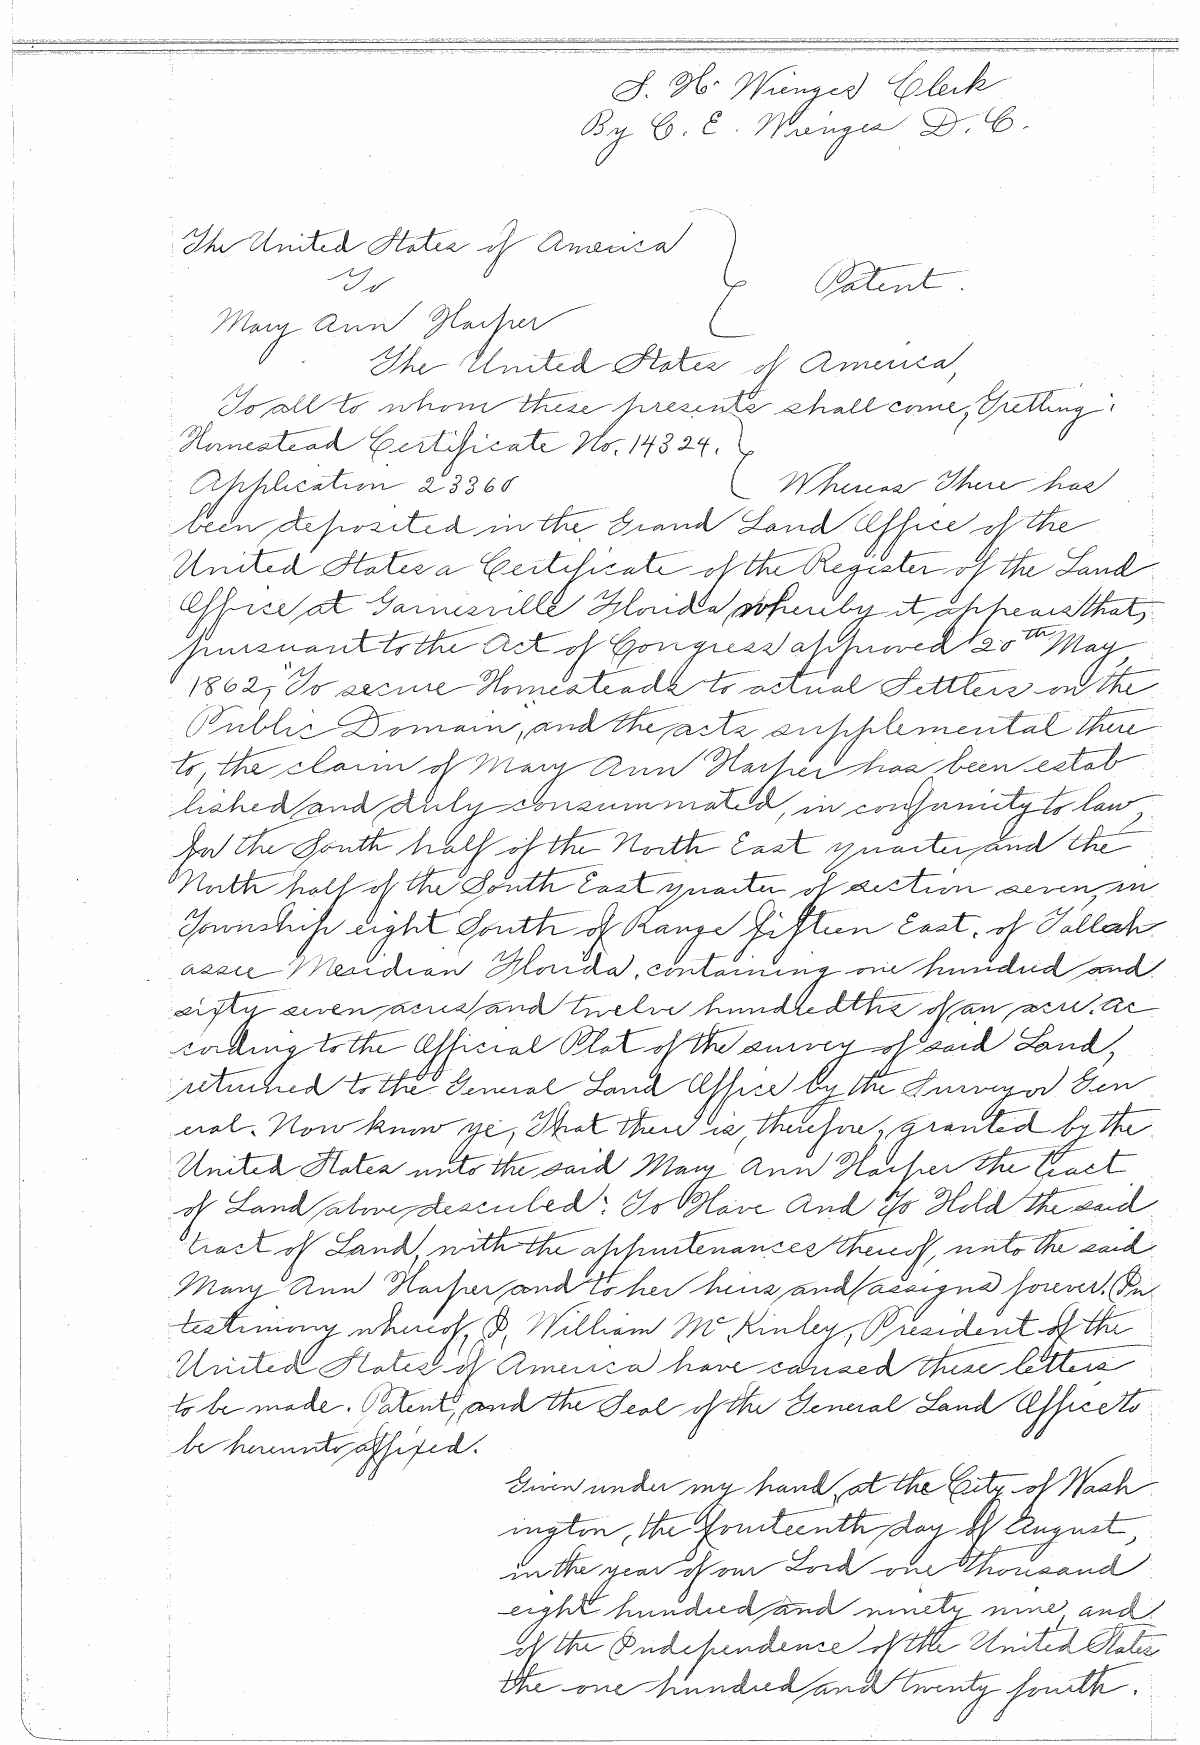 S. H. Wienges Clerk
By C. E. Wienges D. C.
The United States of America
To
Patent.
Mary Ann Harper
The United States of America,
To all to whom these presents shall come, Gretting:
Homestead Certificate No. 14324.
Application 23360
Whereas There has
been deposited in the Grand Land Office of the
United States a Certificate of the Register of the Land
Office at Gainesville Florida, whereby it appears that,
pursuant to the Act of Congress approved 20th May,
1862, "To secure Homesteads to actual Settlers on the
Public Domain," and the acts supplemental there
to, the claim of Mary Ann Harper has been estab
lished and duly consummated, in conformity to law,
for the South half of the North East quarter and the
North half of the South East quarter of section seven, in
Township eight South of Range fifteen East, of Tallah
assee Meridian Florida, containing one hundred and
sixty seven acres and twelve hundredths of an acre. Ac
cording to the Official Plat of the survey of said Land,
returned to the General Land Office by the Surveyor Gen
eral. Now know ye, That there is, therefore, granted by the
United States unto the said Mary Ann Harper the tract
of Land above described: To Have And To Hold the said
tract of Land, with the appurtenances thereof, unto the said
Mary Ann Harper and to her heirs and assigns forever. In
testimony whereof, I, William McKinley, President of the
United States of America have caused these letters
to be made. Patent, and the Seal of the General Land Office to
be hereunto affixed.
Given under my hand, at the City of Wash
ington, the fourteenth day of August,
in the year of our Lord one thousand
eight hundred and ninety nine, and
of the Independence of the United States
the one hundred and twenty fourth.